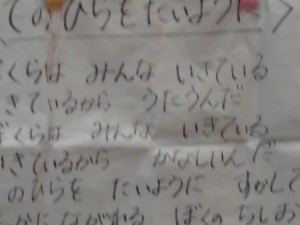 <のひらをたいように>
くらは みんな いきている
きているから うたうんだ
ぼくらは みんな いきている
いきているから かなしいんだ
のひらを たいように すかして
かにながれる ぼくの ちしお